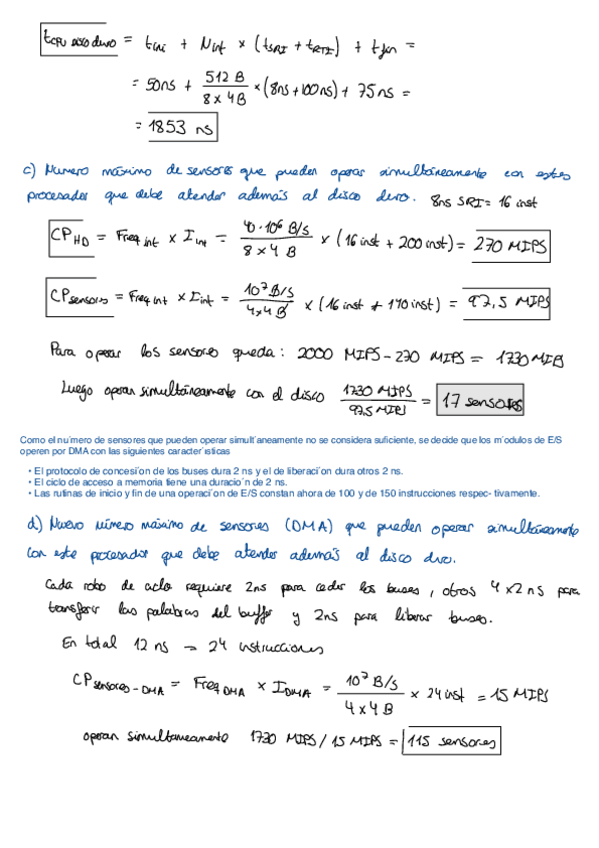 t CPU disco duro = t ini + N int × (t SRI + t RTI) + t fin =
= 50ns + 512 B / 8 × 4B × (8ns + 100ns) + 75 ns =
= 1853 ns
c) Numero máximo de sensores que pueden operar simultáneamente con este
procesador que debe atender además al disco duro. 8ns SRI = 16 inst
CP HD = Freq int × I int = 40·10⁶ B/s / 8 × 4 B × (16 inst + 200 inst) = 270 MIPS
CP sensores = Freq int × I int = 10⁷ B/s / 4×4 B × (16 inst + 140 inst) = 97,5 MIPS
Para operar los sensores queda: 2000 MIPS - 270 MIPS = 1730 MIPS
Luego operan simultáneamente con el disco 1730 MIPS / 97,5 MIPS = 17 sensores
Como el nu´mero de sensores que pueden operar simult´aneamente no se considera suficiente, se decide que los m´odulos de E/S
operen por DMA con las siguientes caracter´ısticas
• El protocolo de concesio´n de los buses dura 2 ns y el de liberacio´n dura otros 2 ns.
• El ciclo de acceso a memoria tiene una duracio´n de 2 ns.
• Las rutinas de inicio y fin de una operacio´n de E/S constan ahora de 100 y de 150 instrucciones respec- tivamente.
d) Nuevo número máximo de sensores (DMA) que pueden operar simultáneamente
con este procesador que debe atender además al disco duro.
Cada robo de ciclo requiere 2ns para ceder los buses, otros 4×2 ns para
transferir las palabras del buffer y 2ns para liberar buses.
En total 12 ns → 24 instrucciones
CP sensores-DMA = Freq DMA × I DMA = 10⁷ B/s / 4 × 4 B × 24 inst = 15 MIPS
operan simultaneamente 1730 MIPS / 15 MIPS = 115 sensores